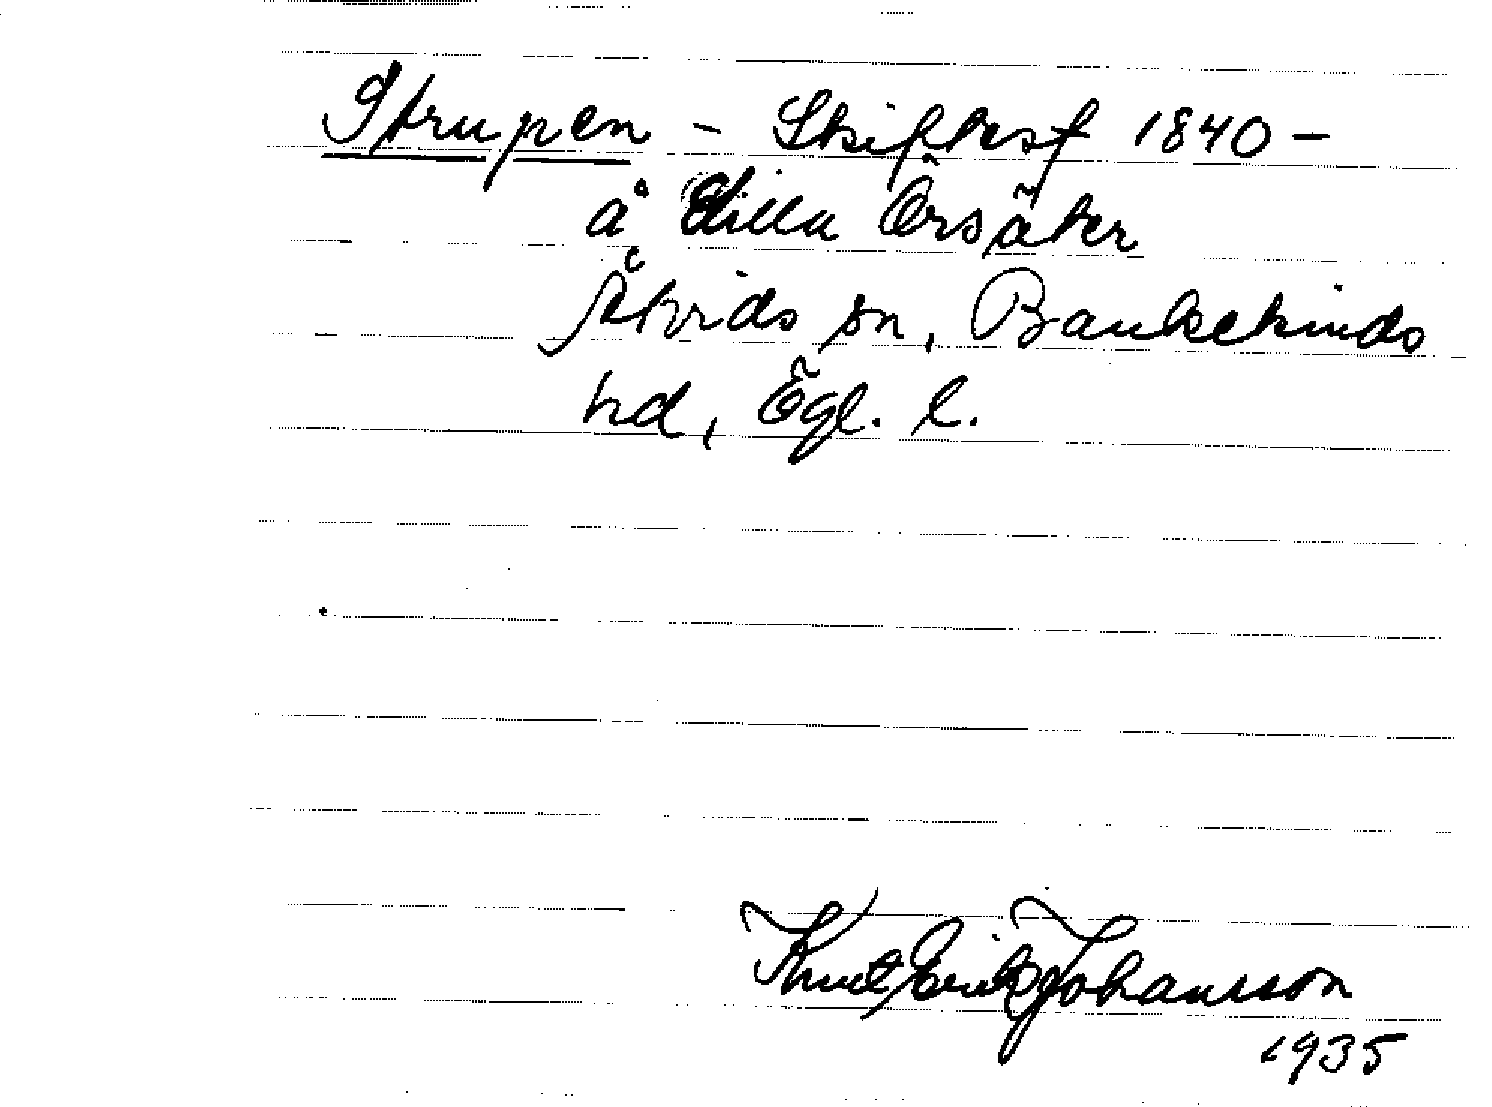 Strupen - Skiftesf 1840 -
å Lilla Örsäter
Åtvids sn, Bankekinds
hd, Ögl. l.
Knut Erik Johansson
1935